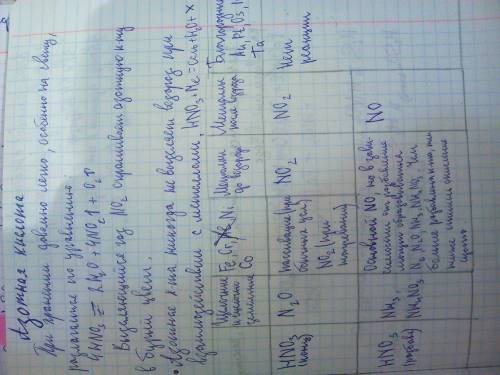 Азотная кислота
При хранении довольно легко, особенно на свету,
разлагается по уравнению:
4HNO3 = 2H2O + 4NO2↑ + O2↑
Выделяющийся газ NO2 окрашивает азотную к-ту
в бурый цвет.
• Азотная к-та никогда не выделяет водород при
взаимодействии с металлами. HNO3 + Me = соль + H2O + X
Щелочные и щелочно земельные
Fe, Cr, Al, Ni, Co
Металлы до водорода
Металлы после водорода
Благородные Au, Pt, Os, Ta
HNO3 (конц)
N2O
пассивация (при обычных усл) NO2 (при нагревании)
NO2
NO2
Нет реакции
HNO3 (разбав)
NH3, NH4NO3
Основной NO, но в зависимости от разбавления могут образоваться N2, N2O, NH3, NH4NO3. Чем больше разбавлена к-та, тем ниже степень окисления азота
NO